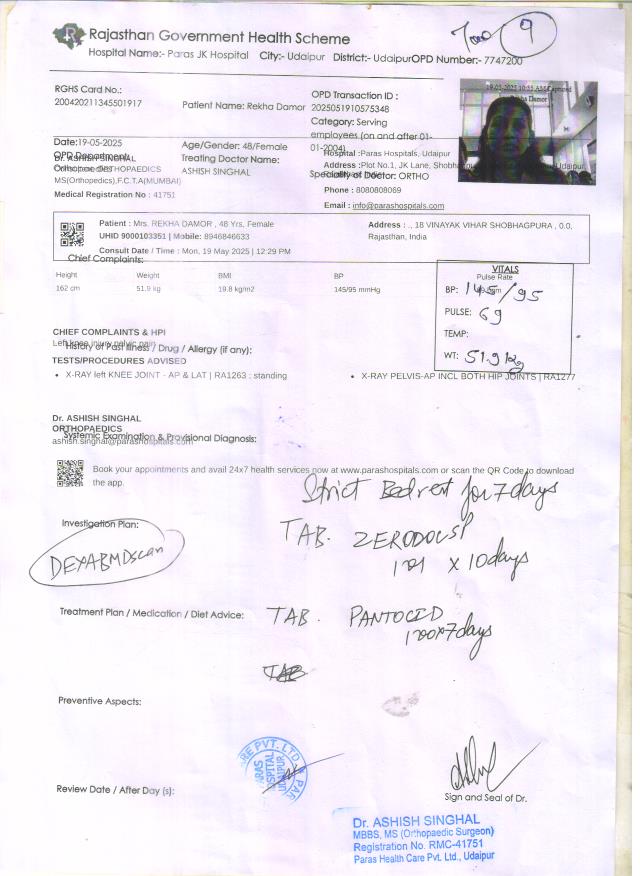 Rajasthan Government Health Scheme
Hospital Name:- Paras JK Hospital City:- Udaipur District:- Udaipur OPD Number:- 7747200
9
RGHS Card No.:
200420211345501917
Patient Name: Rekha Damor
OPD Transaction ID :
2025051910575348
Category: Serving
employees (on and after 01-
01-2004)
Date:19-05-2025
Age/Gender: 48/Female
OPD Department:
Orthopaedics
Dr. ASHISH SINGHAL
ORTHOPAEDICS
MS(Orthopedics),F.C.T.A(MUMBAI)
Medical Registration No : 41751
Treating Doctor Name:
ASHISH SINGHAL
Hospital :Paras Hospitals, Udaipur
Address :Plot No.1, JK Lane, Udaipur,
Speciality of Doctor: ORTHO
Phone : 8080808069
Email : info@parashospitals.com
Patient : Mrs. REKHA DAMOR , 48 Yrs, Female
UHID 9000103351 | Mobile: 8946846633
Consult Date / Time : Mon, 19 May 2025 | 12:29 PM
Address : ., 18 VINAYAK VIHAR SHOBHAGPURA , 0.0,
Rajasthan, India
Chief Complaints:
Height Weight BMI BP
162 cm 51.9 kg 19.8 kg/m2 145/95 mmHg
VITALS
Pulse Rate
BP: 145/95
PULSE: 69
TEMP:
WT: 51.9 kg
CHIEF COMPLAINTS & HPI
Left knee injury pelvic pain
History of Past Illness / Drug / Allergy (if any):
TESTS/PROCEDURES ADVISED
• X-RAY left KNEE JOINT - AP & LAT | RA1263 : standing
• X-RAY PELVIS-AP INCL BOTH HIP JOINTS | RA1277
Dr. ASHISH SINGHAL
ORTHOPAEDICS
ashish.singhal@parashospitals.com
Systemic Examination & Provisional Diagnosis:
Book your appointments and avail 24x7 health services now at www.parashospitals.com or scan the QR Code to download
the app.
Strict Bedrest for 7 days
Investigation Plan:
DEXA BMD scan
TAB. ZERODOL SP
101 X 10 days
Treatment Plan / Medication / Diet Advice:
TAB. PANTOCID
100 X 7 days
TAB
Preventive Aspects:
Review Date / After Day (s):
Sign and Seal of Dr.
Dr. ASHISH SINGHAL
MBBS, MS (Orthopaedic Surgeon)
Registration No. RMC-41751
Paras Health Care Pvt. Ltd., Udaipur